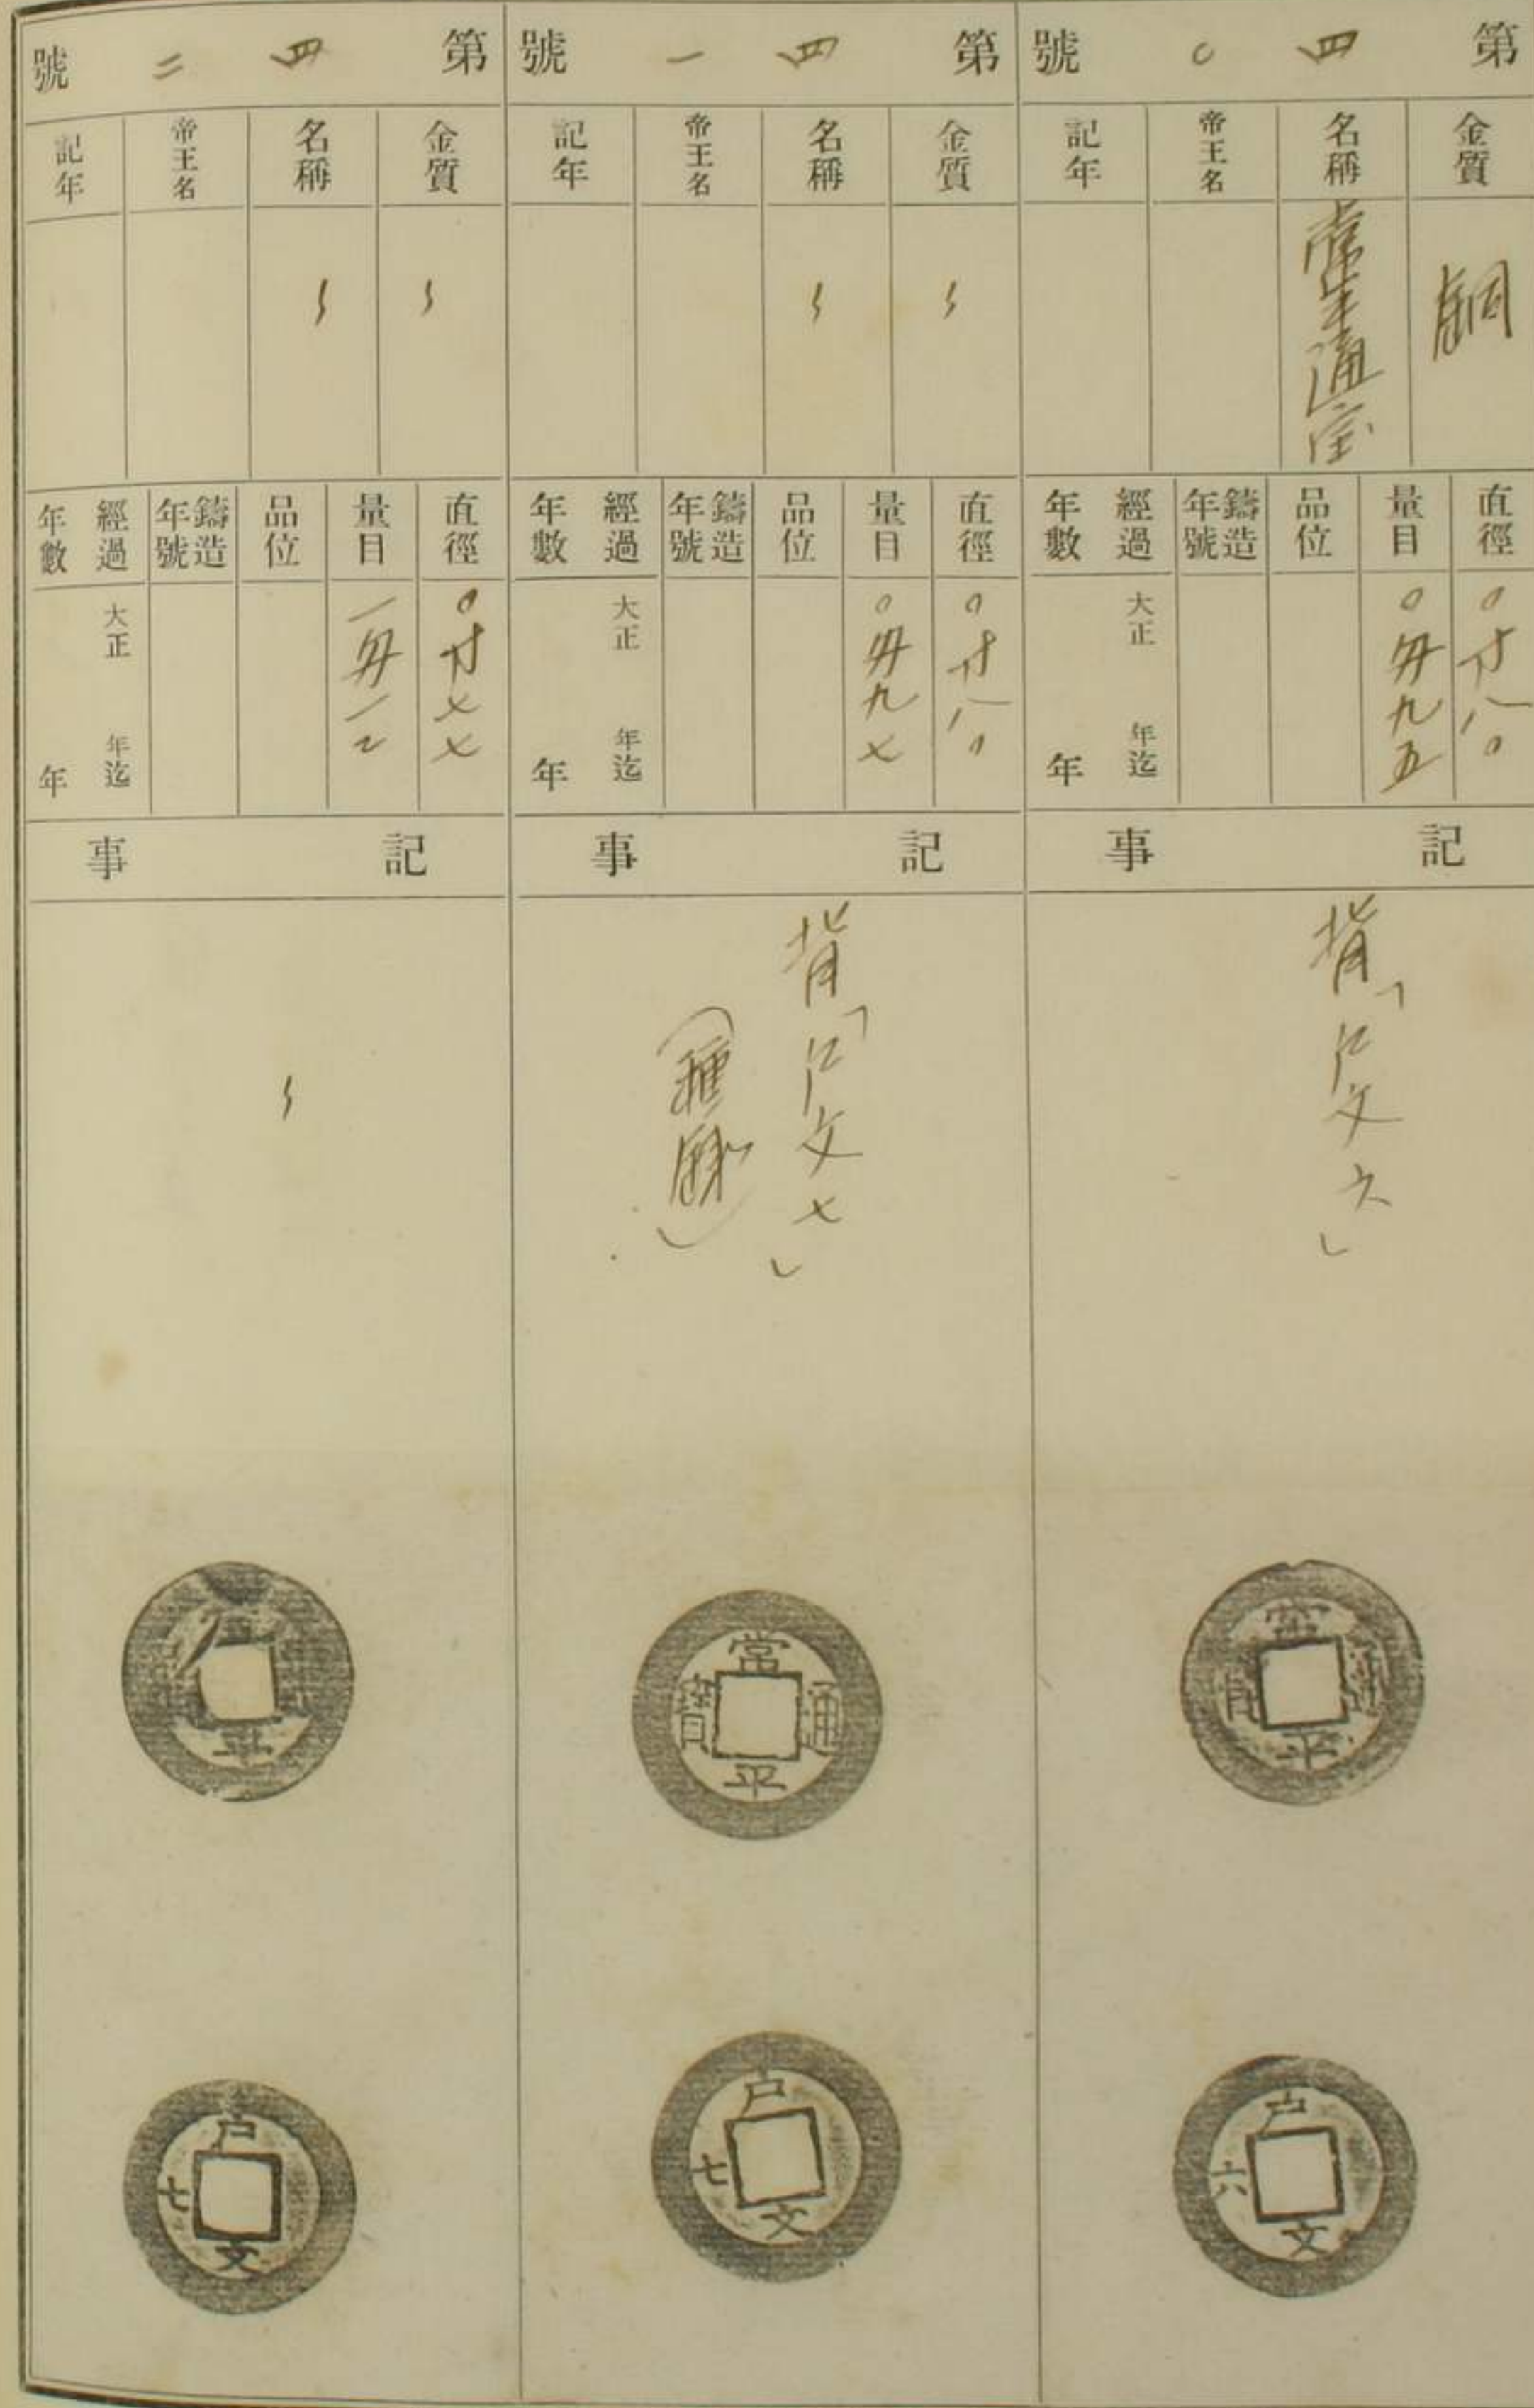 第四〇號
金質
銅
名稱
常平通宝
帝王名
記年
直徑
〇寸八〇
量目
〇匁九五
品位
鑄造年號
經過年數
大正 年迄
年
記事
背「戸文六」
常平通寶
戶文六
第四一號
金質
〻
名稱
〻
帝王名
記年
直徑
〇寸八〇
量目
〇匁九七
品位
鑄造年號
經過年數
大正 年迄
年
記事
背「戸文七」
(種錢)
常平通寶
戶文七
第四二號
金質
〻
名稱
〻
帝王名
記年
直徑
〇寸七七
量目
一匁一二
品位
鑄造年號
經過年數
大正 年迄
年
記事
〻
平
戶文七